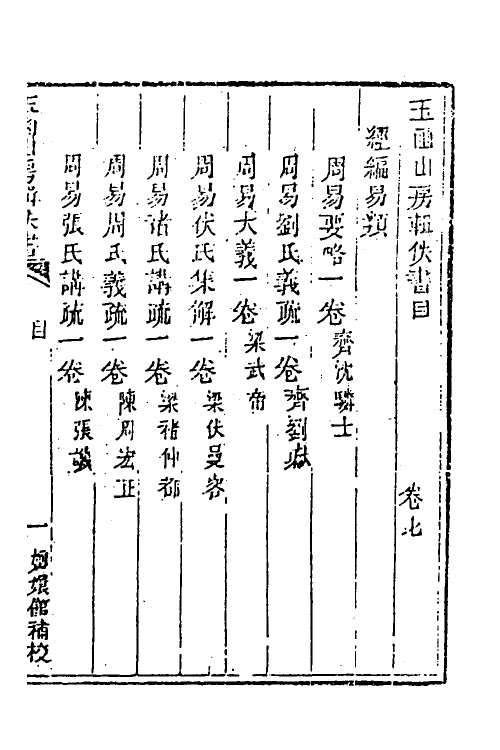 玉函山房輯佚書目　卷七
經編易類
周易要略一卷齊沈驎士
周易劉氏義疏一卷齊劉瓛
周易大義一卷梁武帝
周易伏氏集解一卷梁伏曼容
周易褚氏講疏一卷梁褚仲都
周易周氏義疏一卷陳周宏正
周易張氏講疏一卷陳張譏
玉函山房輯佚書　目　一　嫏嬛館補校